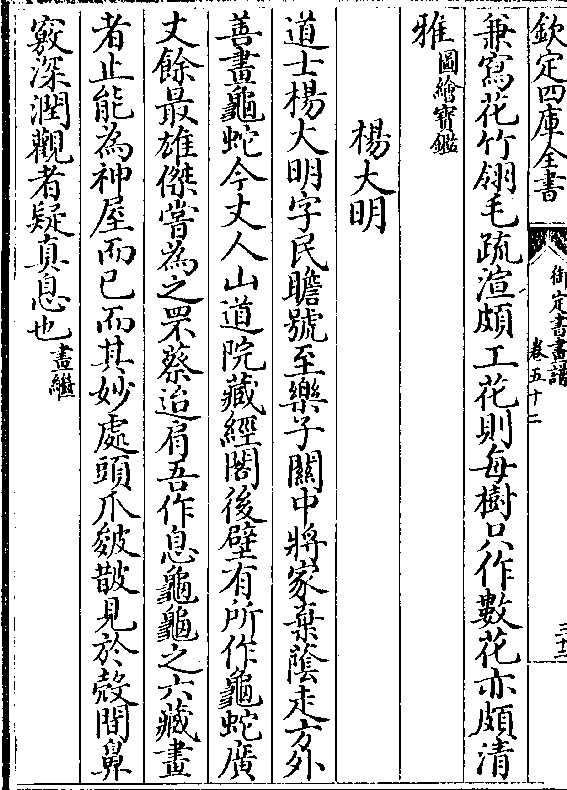 欽定四庫全書
御定書畫譜
卷五十二
兼寫花竹翎毛疏渲頗工花則每樹只作數花亦頗清
雅圖繪寶鑑
楊大明
道士楊大明字民瞻號至樂子關中將家棄蔭走方外
善畫龜蛇今丈人山道院藏經閣後壁有所作龜蛇廣
丈餘最雄傑嘗為之眔蔡迨肩吾作息龜龜之六藏畫
者止能為神屋而已而其妙處頭爪皴皵見於殼間鼻
竅深潤觀者疑真息也畫繼